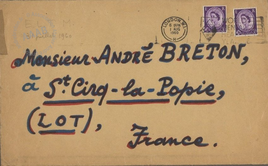 Monsieur ANDRÉ BRETON,
à St. Cirq-la-Popie,
(LOT),
France.